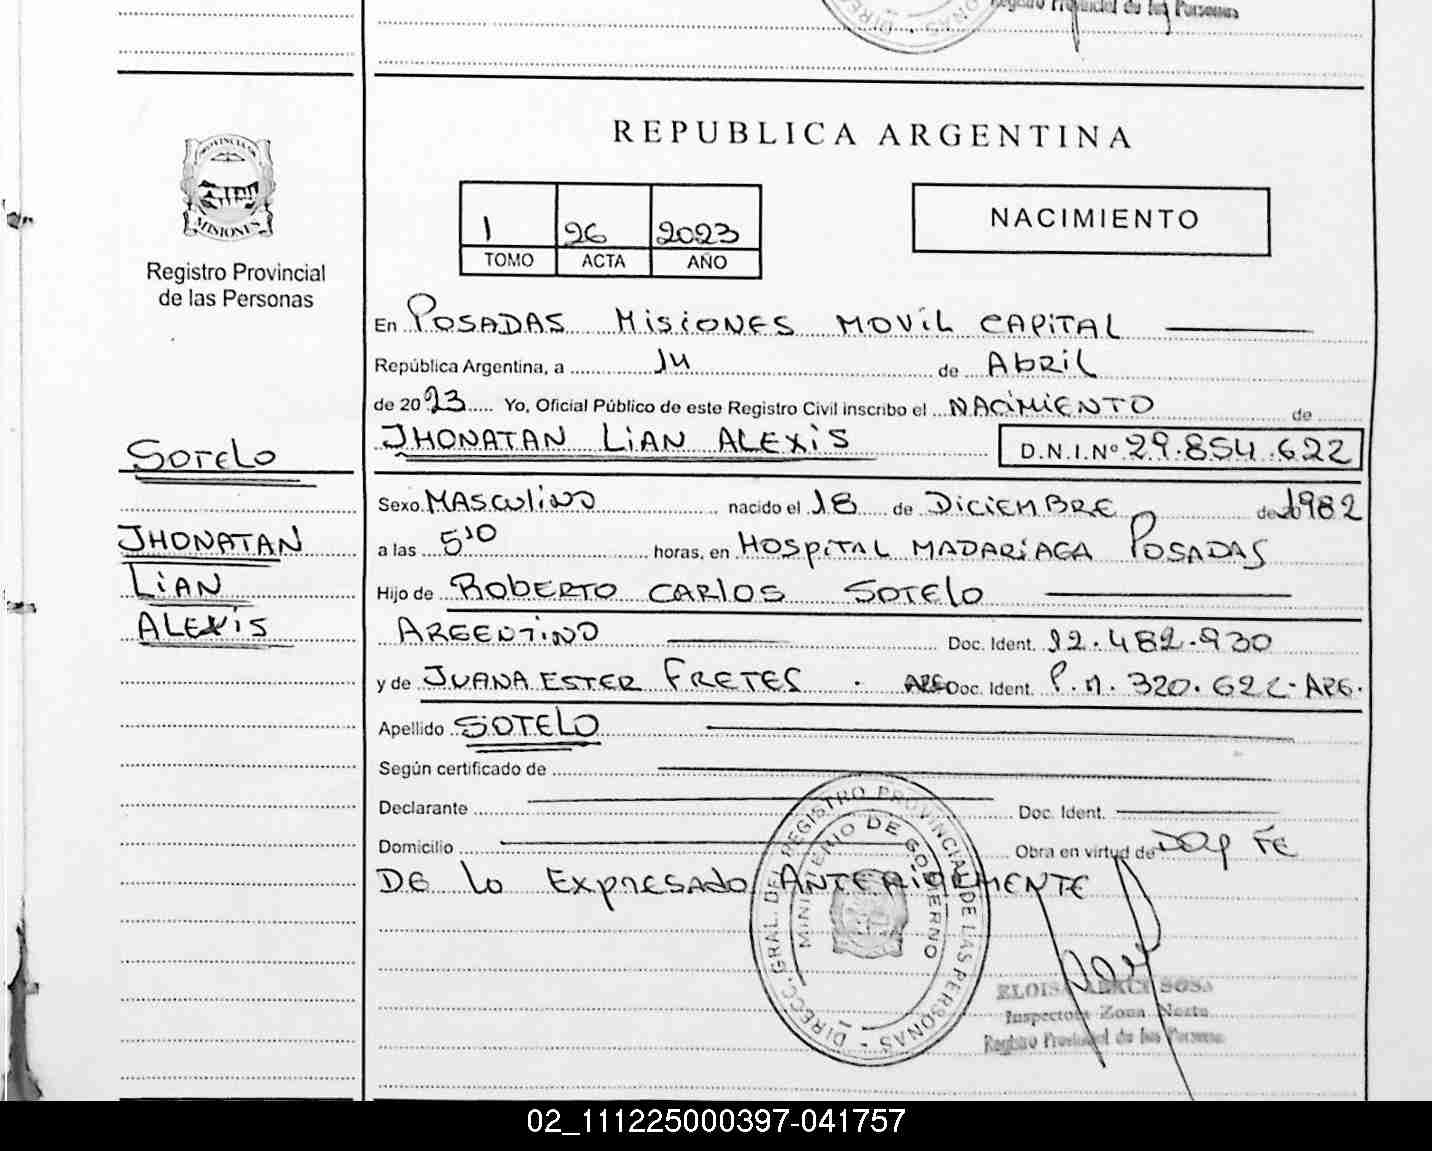 Registro Provincial de las Personas
REPUBLICA ARGENTINA
PROVINCIA DE
MISIONES
Registro Provincial
de las Personas
1 26 2023
TOMO ACTA AÑO
NACIMIENTO
En POSADAS MISIONES MOVIL CAPITAL
República Argentina, a 14 de Abril
de 2023 Yo, Oficial Público de este Registro Civil inscribo el NACIMIENTO de
JHONATAN LIAN ALEXIS D.N.I.Nº 29.854.622
SOTELO
JHONATAN
LIAN
ALEXIS
Sexo MASCULINO nacido el 18 de DICIEMBRE de 1982
a las 5'10 horas, en HOSPITAL MADARIAGA POSADAS
Hijo de ROBERTO CARLOS SOTELO
ARGENTINO Doc. Ident. 12.482.930
y de JUANA ESTER FRETES. ARG Doc. Ident. P.N. 320.622-ARG.
Apellido SOTELO
Según certificado de
Declarante Doc. Ident.
Domicilio Obra en virtud de DOY FE
DE LO EXPRESADO ANTERIORMENTE
DIRECC. GRAL. DEL REGISTRO PROVINCIAL DE LAS PERSONAS -
MINISTERIO DE GOBIERNO
SOSA
Inspectora Zona Norte
Registro Provincial de las Personas
02_111225000397-041757